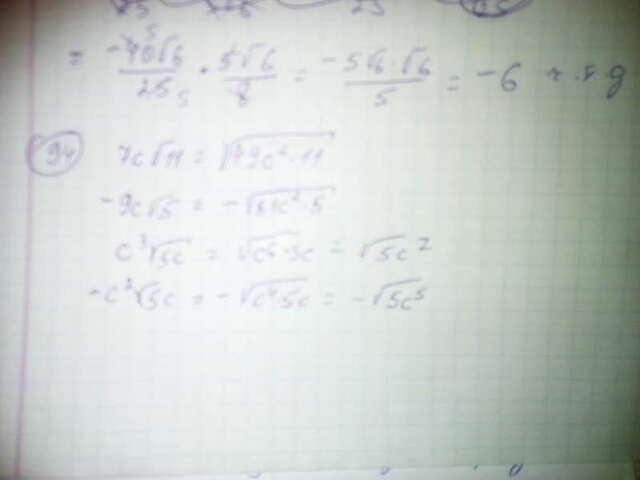 = -40√6/25 · 5√6/8 = -5√6·√6/5 = -6 ч.т.д
94 7c√11 = √49c²·11
-9c√5 = -√81c²·5
c³√5c = √c⁶·5c = √5c⁷
-c²√5c = -√c⁴·5c = -√5c⁵